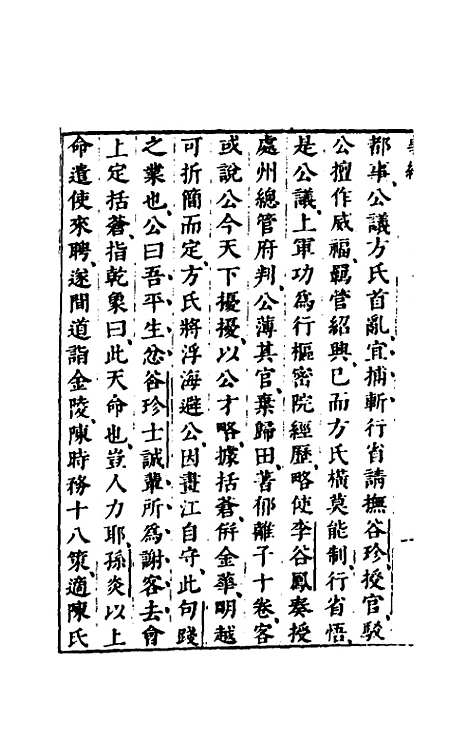 都事公議方氏首亂宜捕斬行省請撫谷珍授官駁
公擅作威福羈管紹興已而方氏橫莫能制行省悟
是公議上軍功為行樞密院經歷略使李谷鳳奏授
處州總管府判公薄其官棄歸田著郁離子十卷客
或說公今天下擾擾以公才略據括蒼併金華明越
可折簡而定方氏將浮海避公因畫江自守此句踐
之業也公曰吾平生忿谷珍士誠輩所為謝客去會
上定括蒼指乾象曰此天命也豈人力耶孫炎以上
命遣使來聘遂間道詣金陵陳時務十八策適陳氏